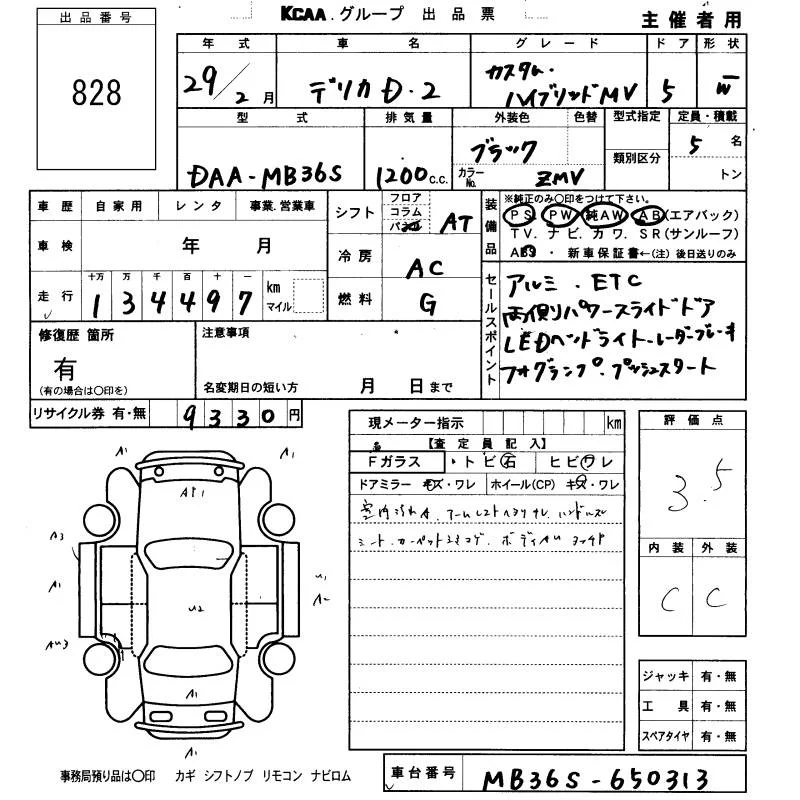 出品番号
828
KCAA.グループ 出品票
主催者用
年式 車名 グレード ドア 形状
29/2月 デリカD・2 カスタム・
ハイブリッドMV 5 W
型式 排気量 外装色 色替 型式指定 定員・積載
類別区分
DAA-MB36S 1200c.c. ブラック
カラーNo. ZMV 5名
トン
車歴 自家用 レンタ 事業.営業車
車検 年 月
走行 十万 万 千 百 十 一
1 3 4 4 9 7 km
マイル
シフト フロア
コラム
AT
冷房 AC
燃料 G
装備品
※純正のみ〇印をつけて下さい。
PS. PW. 純AW. AB(エアバック)
TV. ナビ. カワ. SR(サンルーフ)
ABS ・ 新車保証書←(注) 後日送りのみ
セールスポイント
アルミ . ETC
両側パワースライドドア
LEDヘッドライト・レーダーブレーキ
フォグランプ・プッシュスタート
修復歴 箇所
有
(有の場合は〇印を)
注意事項
名変期日の短い方 月 日まで
リサイクル券 有・無 9330円
現メーター指示 km
【査定員記入】
Fガラス ・トビ石 ヒビワレ
ドアミラー キズ・ワレ ホイール(CP) キズ・ワレ
評価点
3.5
内装 外装
C C
A1 A1
AP1
A3
A1
U1
A2
U2
AU3
A1
A1
ジャッキ 有・無
工具 有・無
スペアタイヤ 有・無
事務局預り品は〇印 カギ シフトノブ リモコン ナビロム
車台番号 MB36S-650313